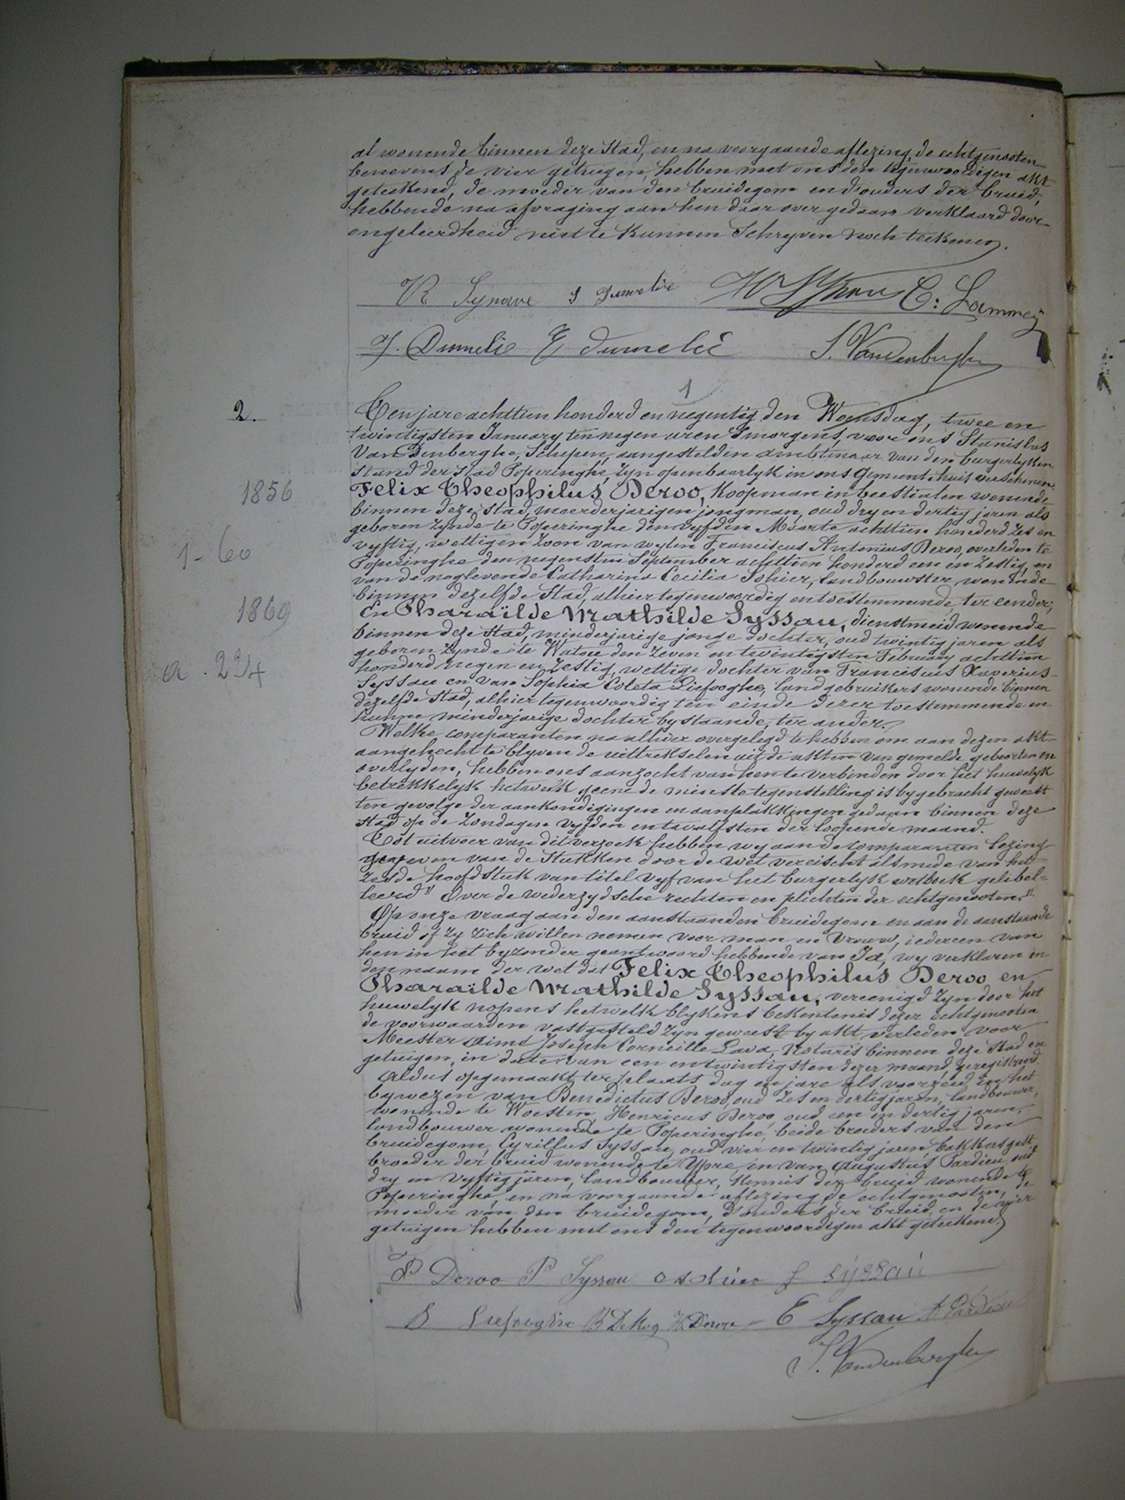 al wonende binnen deze Stad, en na voorgaande aflezing, de echtgenooten
benevens de vier getuigen, hebben met ons den tegenwoordigen akt
geteekend, de moeder van den bruidegom en d'ouders der bruid,
hebbende na afvraging aan hen daar over gedaan verklaard door
ongeleerdheid niet te kunnen Schryven noch teekenen.
R Synave S Dumelie C: Lammey
J. Dumelie E dumelié S. Vandenberghe
1
2.
Ten jare achttien honderd en negentig den Woensdag, twee en
twintigsten January ten negen uren 's morgens, voor ons Stanislas
Vandenberghe, Schepen, aangestelden ambtenaar van den burgerlyken
Stand der Stad Poperinghe, zyn openbaarlyk in ons Gemeentehuis verschenen
1856
Felix Theophilus Deroo, Koopman in beestialen wonende
binnen deze Stad, meerderjarigen jongman, oud dry en dertig jaren als
geboren zynde te Poperinghe den vyfden Maarte achttien honderd zes en
vyftig, wettigen zoon van wylen Franciscus Antonius Deroo, overleden te
1-60
Poperinghe den negensten September achttien honderd een en zestig, en
van de noglevende Catharina Cecilia Sohier, landbouwster wonende
binnen dezelfde Stad, alhier tegenwoordig en toestemmende, ter eender;
1869
En Pharaïlde Mathilde Syssau, dienstmeid wonende
binnen deze Stad, minderjarige jonge dochter, oud twintig jaren als
geboren zynde te Watou den zeven en twintigsten February achttien
honderd negen en zestig, wettige dochter van Franciscus Xaverius
a. 234
Syssau en van Sophia Coleta Liefooghe, landgebruikers wonende binnen
dezelfde Stad, alhier tegenwoordig ten einde dezer toestemmende en
hunne minderjarige dochter bystaande, ter ander.
Welke comparanten na alhier overgelegd te hebben om aan dezen akt
aangehecht te blyven de uittrekselen uit de akten van gemelde geboorten en
overlyden, hebben ons aanzocht van hen te verbinden door het huwelyk
betrekkelyk hetwelk geene de minste tegenstelling is bygebracht geweest
ten gevolge der aankondigingen en aanplakkingen gedaan binnen deze
Stad op de Zondagen vyfden en twaalfsten der loopende maand.
Tot uitvoer van dit verzoek hebben wy aan de comparanten lezing
gegeven van de Stukken door de wet vereischt alsmede van het
zesde hoofdstuk van titel vyf van het burgerlyk wetboek getebel-
leerd "Over de wederzydsche rechten en plichten der echtgenooten".
Op onze vraag aan den aanstaanden bruidegom en aan de aanstaande
bruid of zy zich willen nemen voor man en vrouw, iedereen van
hen in het byzonder geantwoord hebbende van Ja, wy verklaren in
den naam der wet dat Felix Theophilus Deroo en
Pharaïlde Mathilde Syssau, vereenigd zyn door het
huwelyk nopens hetwelk blykens bekentenis dezer echtgenooten
de voorwaarden vastgesteld zyn geweest by akt verleden voor
Meester Aimé Joseph Corneille Lava, Notaris binnen deze Stad en
getuigen, in date van een en twintigsten dezer maand, geregistreerd.
Aldus opgemaakt ter plaats dag en jare als voorzeid in het
bywezen van Benedictus Deroo, oud zes en dertig jaren, landbouwer,
wonende te Woesten, Henricus Deroo, oud een en dertig jaren,
landbouwer wonende te Poperinghe, beide broeders van den
bruidegom, Cyrillus Syssau, oud vier en twintig jaren, bakkersgast
broeder der bruid wonende te Ypre, en van Augustus Pardieu oud
dry en vyftig jaren, landbouwer, Kennis der bruid wonende te
Poperinghe, en na voorgaande aflezing, de echtgenooten, de
moeder van den bruidegom, d'ouders der bruid en de vier
getuigen hebben met ons den tegenwoordigen akt geteekend.
F Deroo P Syssau f syssau
S Liefooghe H Deroo C Syssau A. Pardieu
S. Vandenberghe